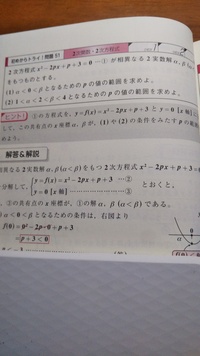 初めからトライ！問題 51 2次関数・2次方程式
2次方程式 x²−2px+p+3=0 …① が相異なる2実数解 α, β
をもつものとする。
(1) α<0<β となるための p の値の範囲を求めよ。
(2) 1<α<2<β<4 となるための p の値の範囲を求めよ。
ヒント！ ①の方程式を、y=f(x)=x²−2px+p+3 と y=0 [x
して、この共有点の x 座標 α, β が、(1)や(2)の条件をみたす p の範囲
めよう。
解答&解説
相異なる2実数解 α, β をもつ2次方程式 x²−2px+p+3=
分解して、 y=f(x)=x²−2px+p+3 …②
y=0 [x軸] ………③ とおくと、
②の共有点の x 座標が、①の解 α, β (α<β) である。
α<0<β となるための条件は、右図より
f(0)=0²−2p・0+p+3
=p+3<0
α